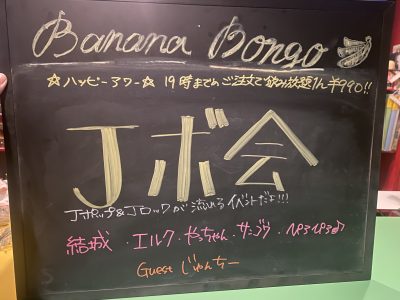 Banana Bongo
☆ハッピーアワー☆ 19時までのご注文で飲み放題1h ¥990!!
Jボ会
Jポップ&Jロックが流れるイベントだよ!!!
結城・エルク・やっちゃん・サンゴウ・ペろペろ♪
Guest じゅんちー